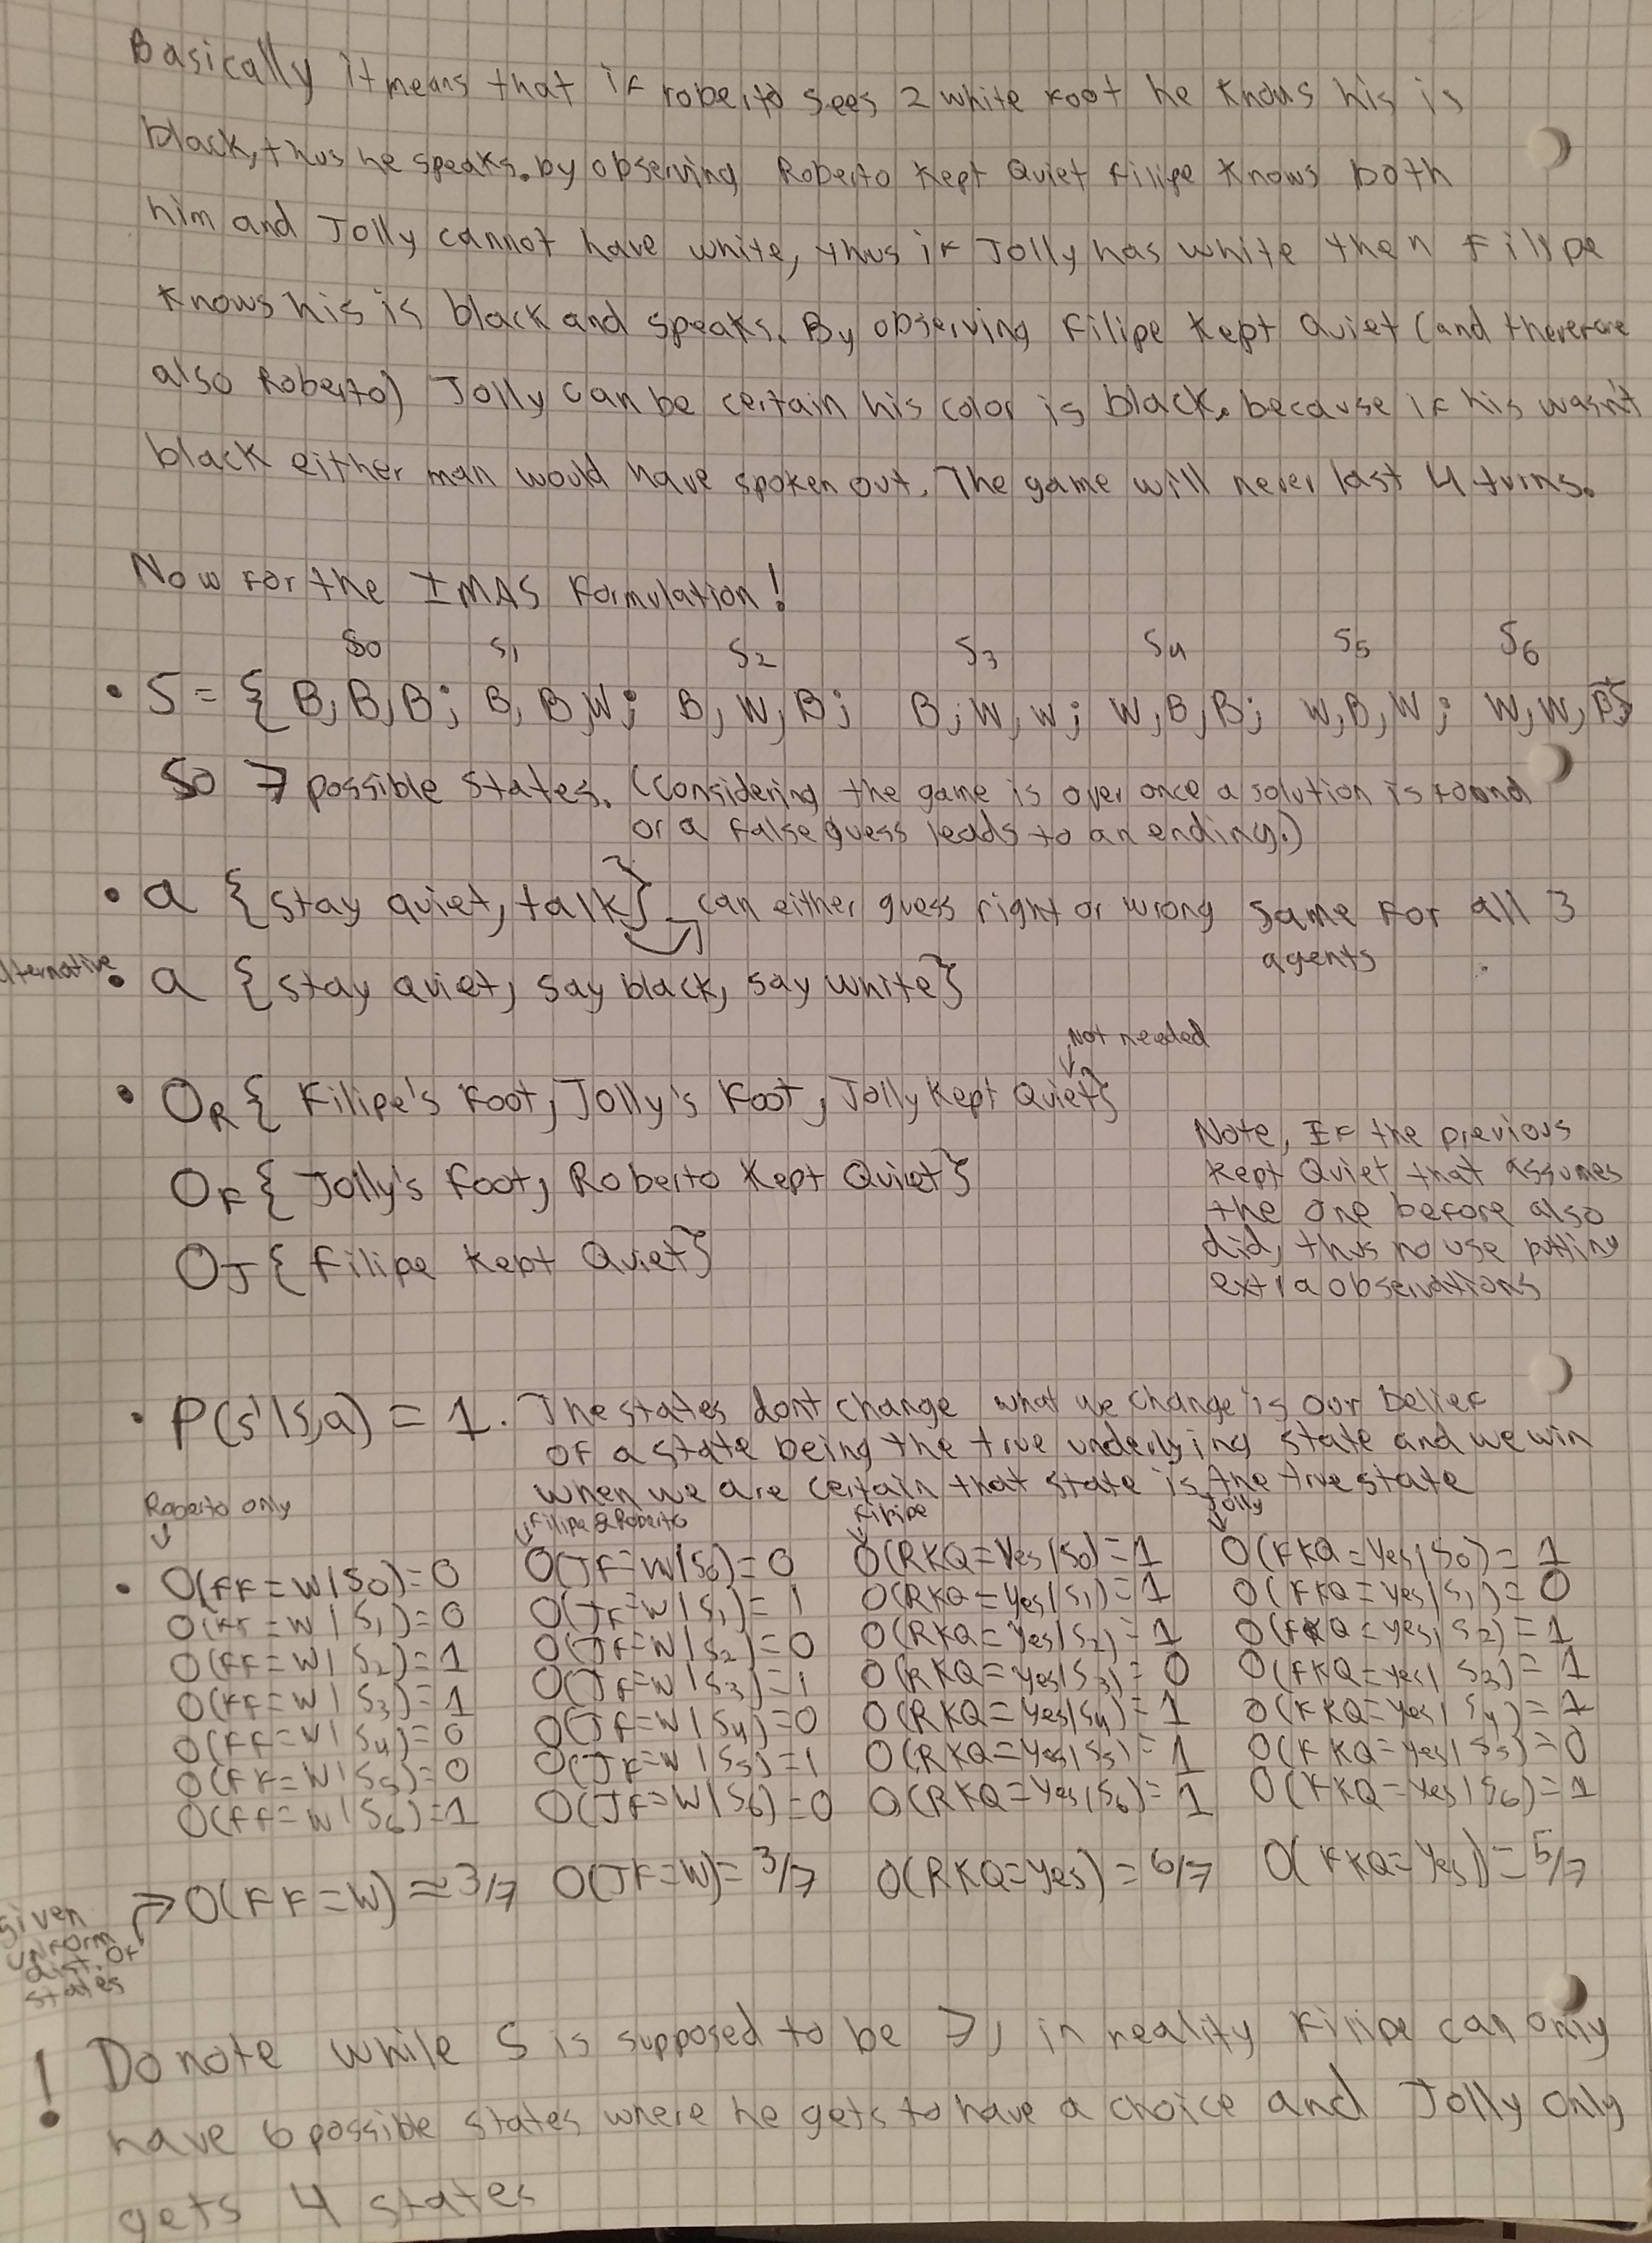 Basically it means that if roberto sees 2 white foot he knows his is
black, thus he speaks. by observing Roberto Kept Quiet Filipe Knows both
him and Jolly cannot have white, thus if Jolly has white then Filipe
Knows his is black and speaks. By observing Filipe Kept Quiet (and therefore
also Roberto) Jolly can be certain his color is black. because if his wasn't
black either man would have spoken out. The game will never last 4 turns.
Now for the IMAS Formulation!
S0 S1 S2 S3 S4 S5 S6
• S = { B, B, B; B, B, W; B, W, B; B, W, W; W, B, B; W, B, W; W, W, B}
So 7 possible states. (Considering the game is over once a solution is found
or a false guess leads to an ending.)
• a {stay quiet, talk} can either guess right or wrong same for all 3
agents
alternative • a {stay quiet, say black, say white}
Not needed
↓
• OR { Filipe's Foot, Jolly's Foot, Jolly Kept Quiet}
OF { Jolly's foot, Roberto Kept Quiet}
OJ { Filipe Kept Quiet}
Note, If the previous
Kept Quiet that assumes
the one before also
did, thus no use putting
extra observations
• P(s'|s,a) = 1. The states dont change what we change is our belief
of a state being the true underlying state and we win
when we are certain that state is the true state
Roberto only ↓ Filipe & Roberto ↓ Filipe ↓ Jolly ↓
• O(FF=W|S0)=0 O(JF=W|S0)=0 O(RKQ=Yes|S0)=1 O(FKQ=Yes|S0)=1
O(FF=W|S1)=0 O(JF=W|S1)=1 O(RKQ=Yes|S1)=1 O(FKQ=Yes|S1)=0
O(FF=W|S2)=1 O(JF=W|S2)=0 O(RKQ=Yes|S2)=1 O(FKQ=Yes|S2)=1
O(FF=W|S3)=1 O(JF=W|S3)=1 O(RKQ=Yes|S3)=0 O(FKQ=Yes|S3)=1
O(FF=W|S4)=0 O(JF=W|S4)=0 O(RKQ=Yes|S4)=1 O(FKQ=Yes|S4)=1
O(FF=W|S5)=0 O(JF=W|S5)=1 O(RKQ=Yes|S5)=1 O(FKQ=Yes|S5)=0
O(FF=W|S6)=1 O(JF=W|S6)=0 O(RKQ=Yes|S6)=1 O(FKQ=Yes|S6)=1
→ O(FF=W) ≈ 3/7 O(JF=W) = 3/7 O(RKQ=Yes) = 6/7 O(FKQ=Yes) = 5/7
Given
uniform
dist. of
states
! Do note while S is supposed to be 7, in reality Filipe can only
have 6 possible states where he gets to have a choice and Jolly only
gets 4 states